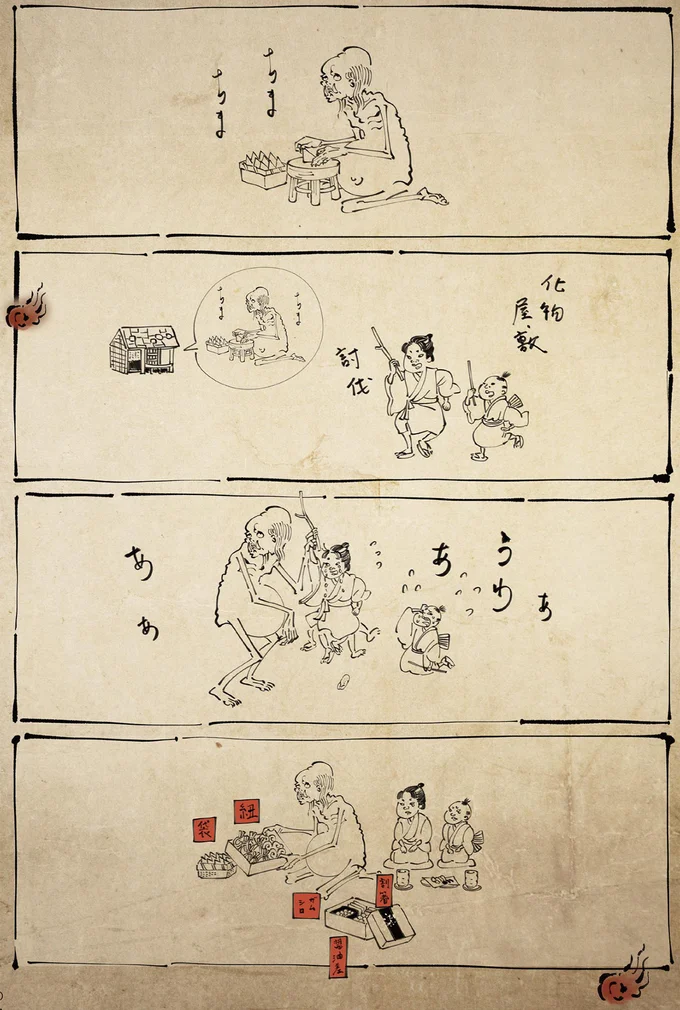 ちま
ちま
化物
屋敷
討伐
ちま
ちま
うわ
あ
あ
あ
あ
紐
袋
割箸
ガム
シロ
醤油差